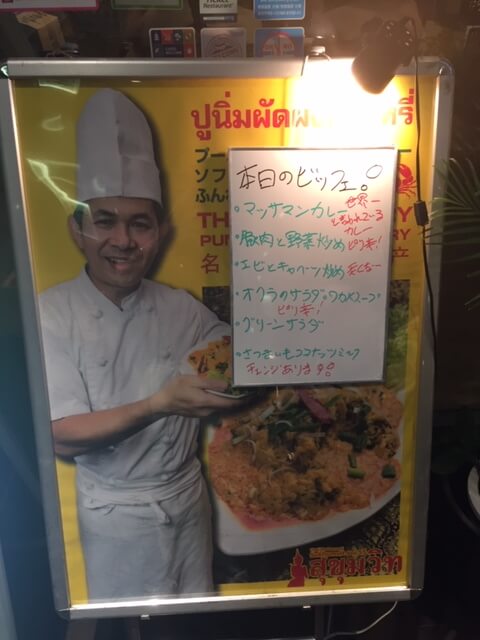 ปูนิ่มผัด
プー
ソフ
ふん
TH
Y
PU
RY
名
立
本日のビッフェ。
・マッサマンカレー 世界一
と言われている
カレー
・豚肉と野菜炒め ピリ辛!
・エビとキャベツ炒め 辛くない
・オクラのサラダ・ワカメスープ
ピリ辛!
・グリーンサラダ
・さつまいもココナッツミルク
チェンジあります。
สุขุมวิท